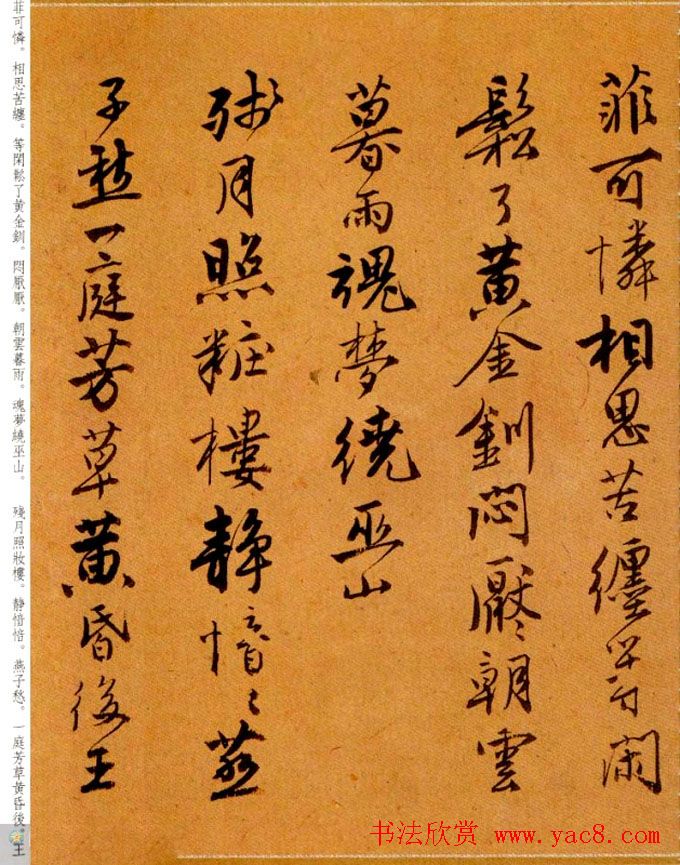 菲可憐相思苦纏等閑
鬆了黃金釧悶厭厭朝雲
暮雨魂夢繞巫山
殘月照粧樓靜愔愔燕
子愁一庭芳草黃昏後王
菲可憐。相思苦纏。等閑鬆了黃金釧。悶厭厭。朝雲暮雨。魂夢繞巫山。 殘月照妝樓。靜愔愔。燕子愁。一庭芳草黃昏後。王
书法欣赏 www.yac8.com